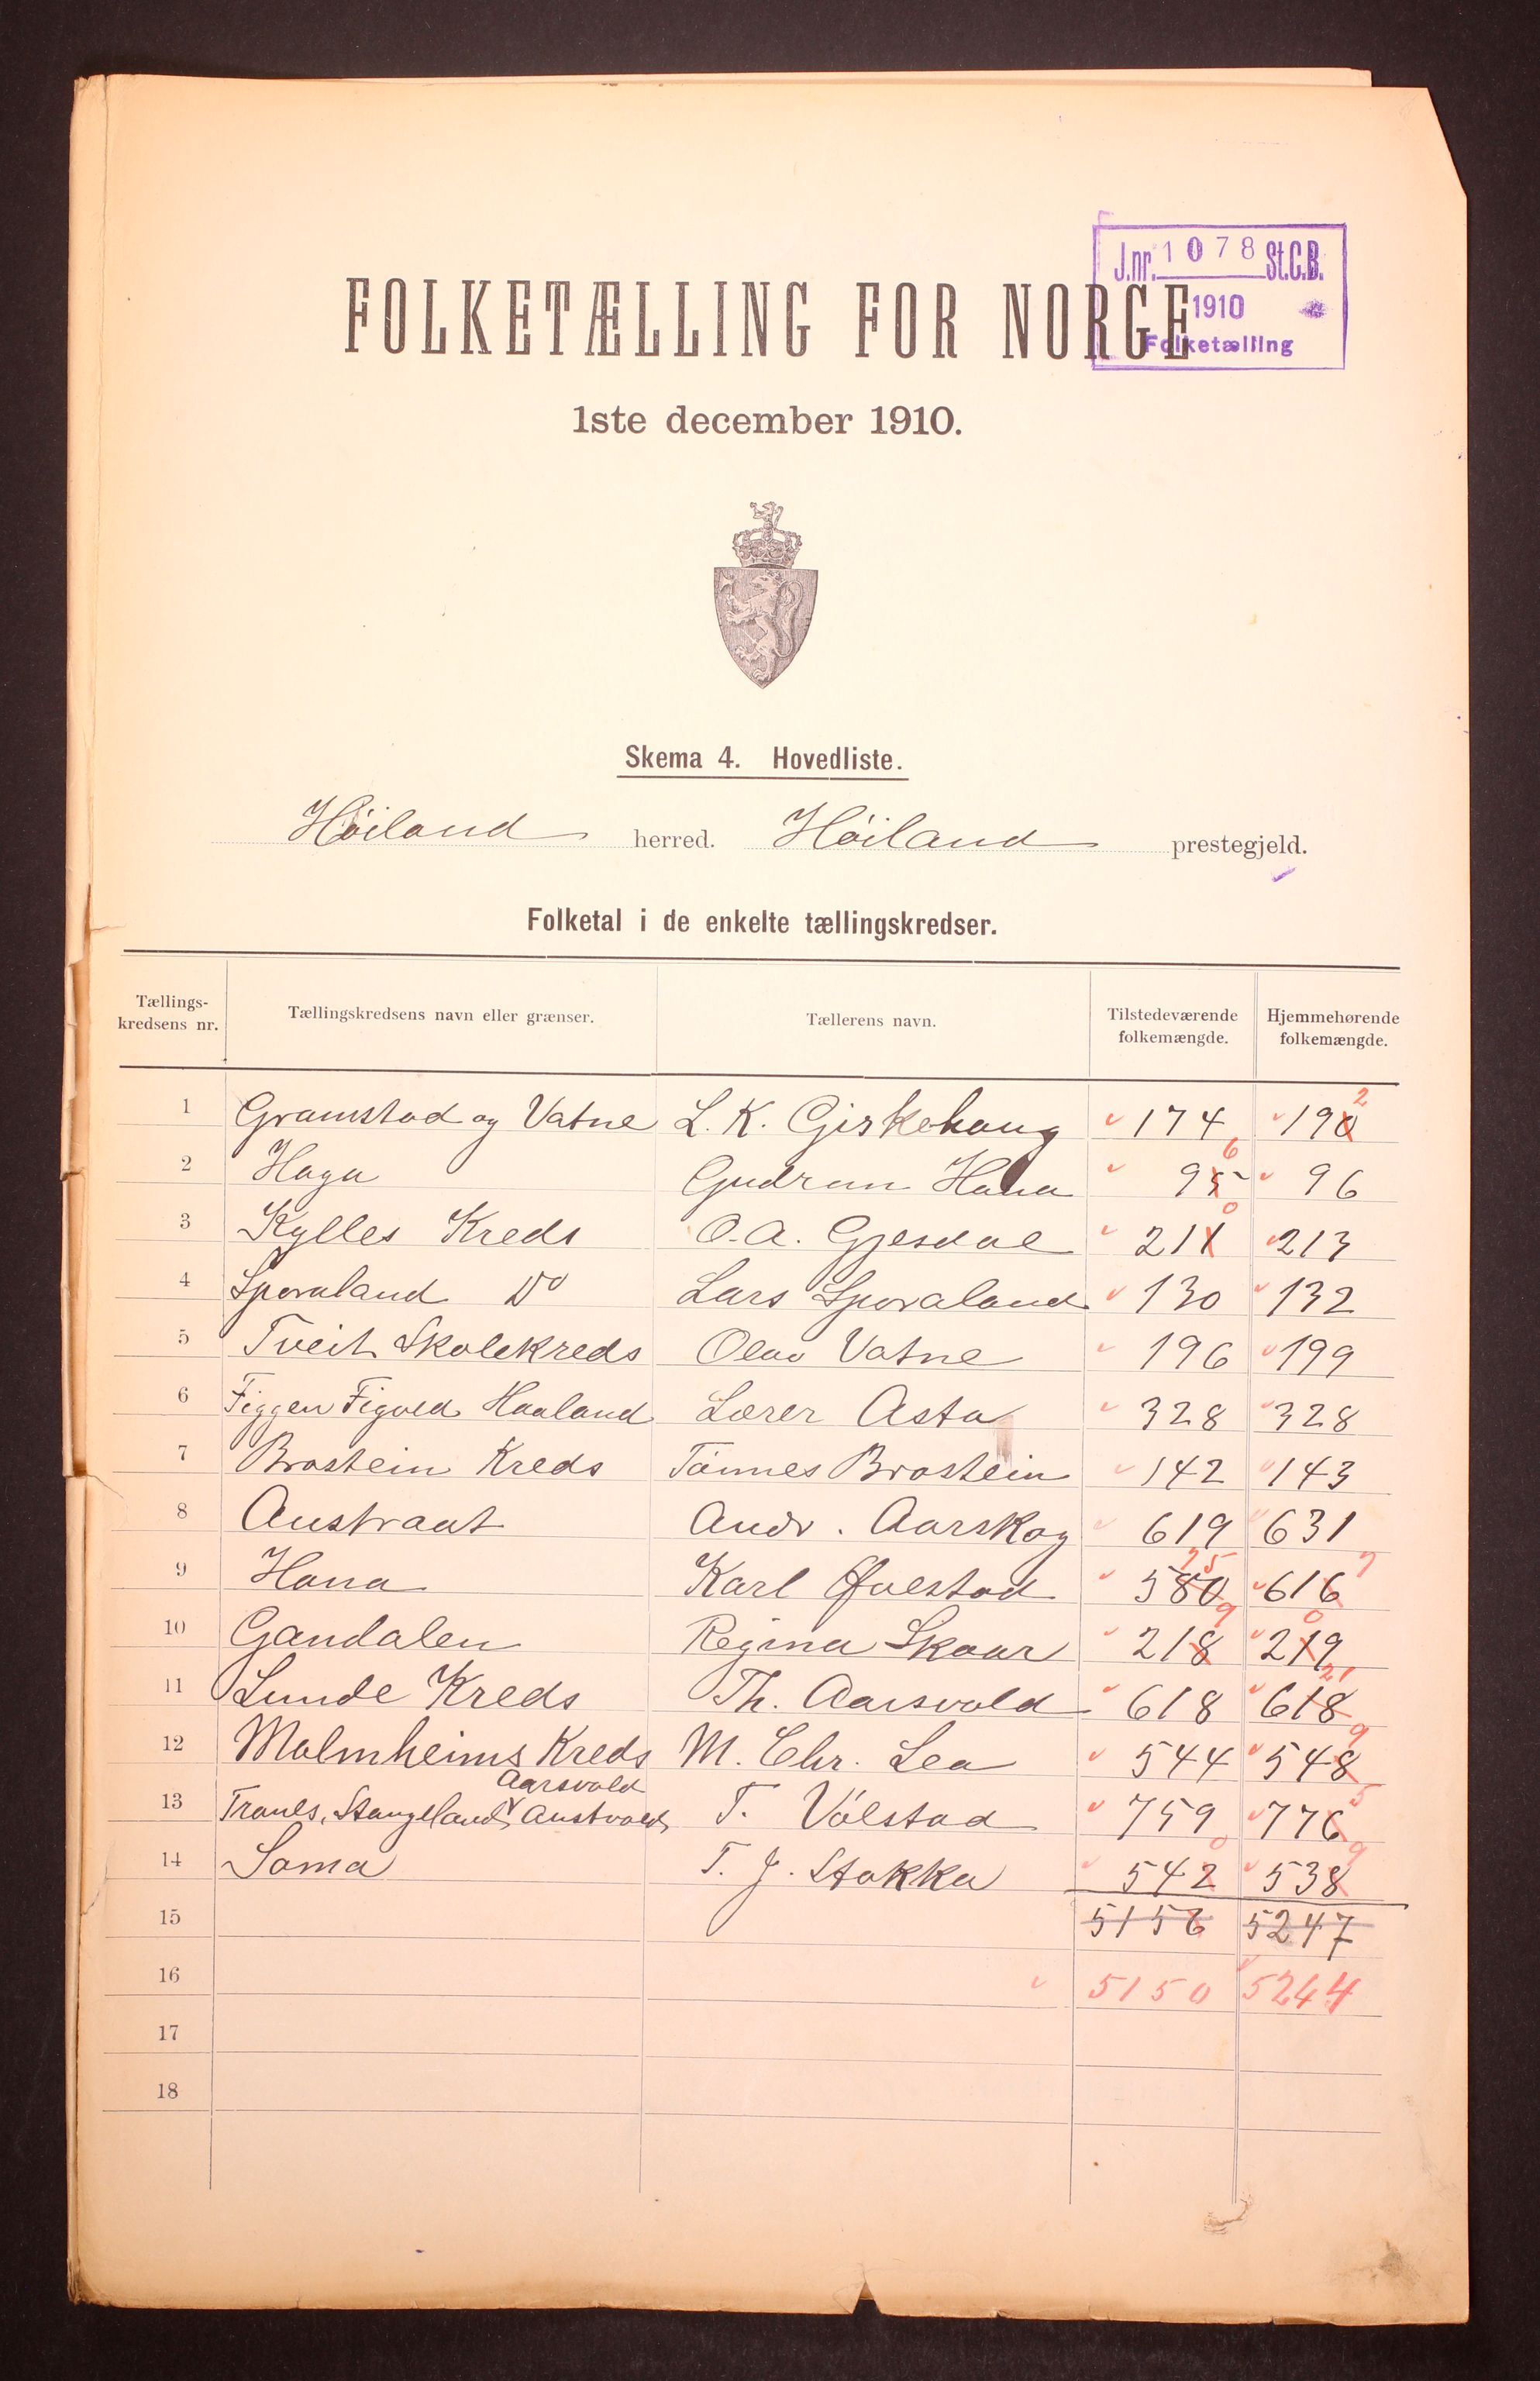 J.nr. 1078 St.C.B.
1910
Folketælling
FOLKETÆLLING FOR NORGE
1ste december 1910.
Skema 4. Hovedliste.
Høiland herred. Høiland prestegjeld.
Folketal i de enkelte tællingskredser.
Tællings-kredsens nr. Tællingskredsens navn eller grænser. Tællerens navn. Tilstedeværende folkemængde. Hjemmehørende folkemængde.
1 Gramstad og Vatne L. K. Girkehaug 174 190 2
2 Hogu Gudrun Hana 95 6 96
3 Kylles Kreds O. A. Gjesdal 211 0 213
4 Sporaland Do Lars Sporaland 130 132
5 Tveit Skolekreds Olav Vatne 196 199
6 Figgen Figved Haaland Lærer Asta 328 328
7 Brostein Kreds Tønnes Brostein 142 143
8 Austraat Andr. Aarskog 619 631
9 Hana Karl Øvestad 580 75 616 7
10 Gandalen Regina Skaar 218 9 219 0
11 Lunde Kreds Th. Aarsvold 618 618 21
12 Malmheims Kreds M. Chr. Lea 544 548 9
Aarsvold
13 Tranes, Stangeland, Austvold T. Vølstad 759 776 5
14 Soma T. J. Stokka 542 0 538 9
15 5156 5247
16 5150 5244
17
18